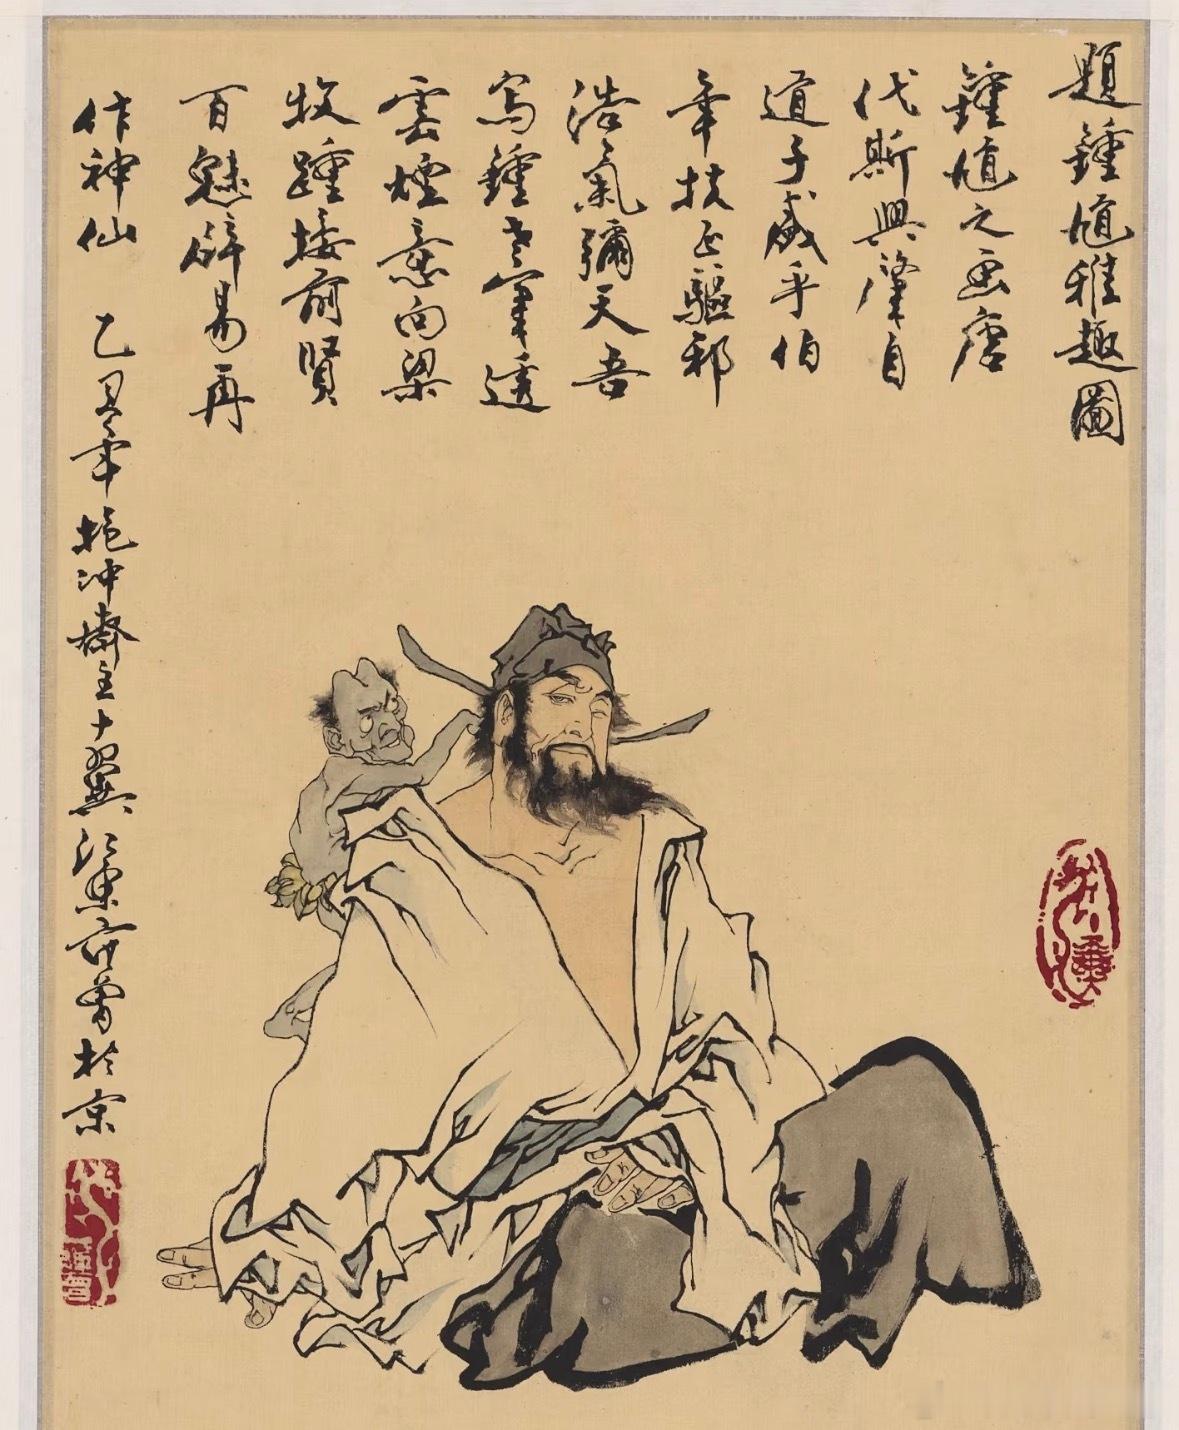 題鍾馗稚趣圖
鍾馗之畫唐
代斯興肇自
道子盛乎伯
年扶正驅邪
浩氣彌天吾
寫鍾老筆透
雲煙意向梁
牧踵接前賢
百魅辟易再
作神仙 乙丑年抱冲齋主十翼江東范曾於京